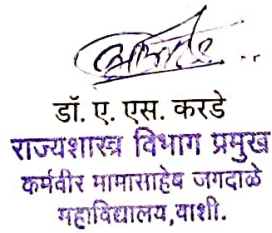 डॉ. ए. एस. करडे
राज्यशास्त्र विभाग प्रमुख
कर्मवीर मामासाहेब जगदाळे
महाविद्यालय,वाशी.